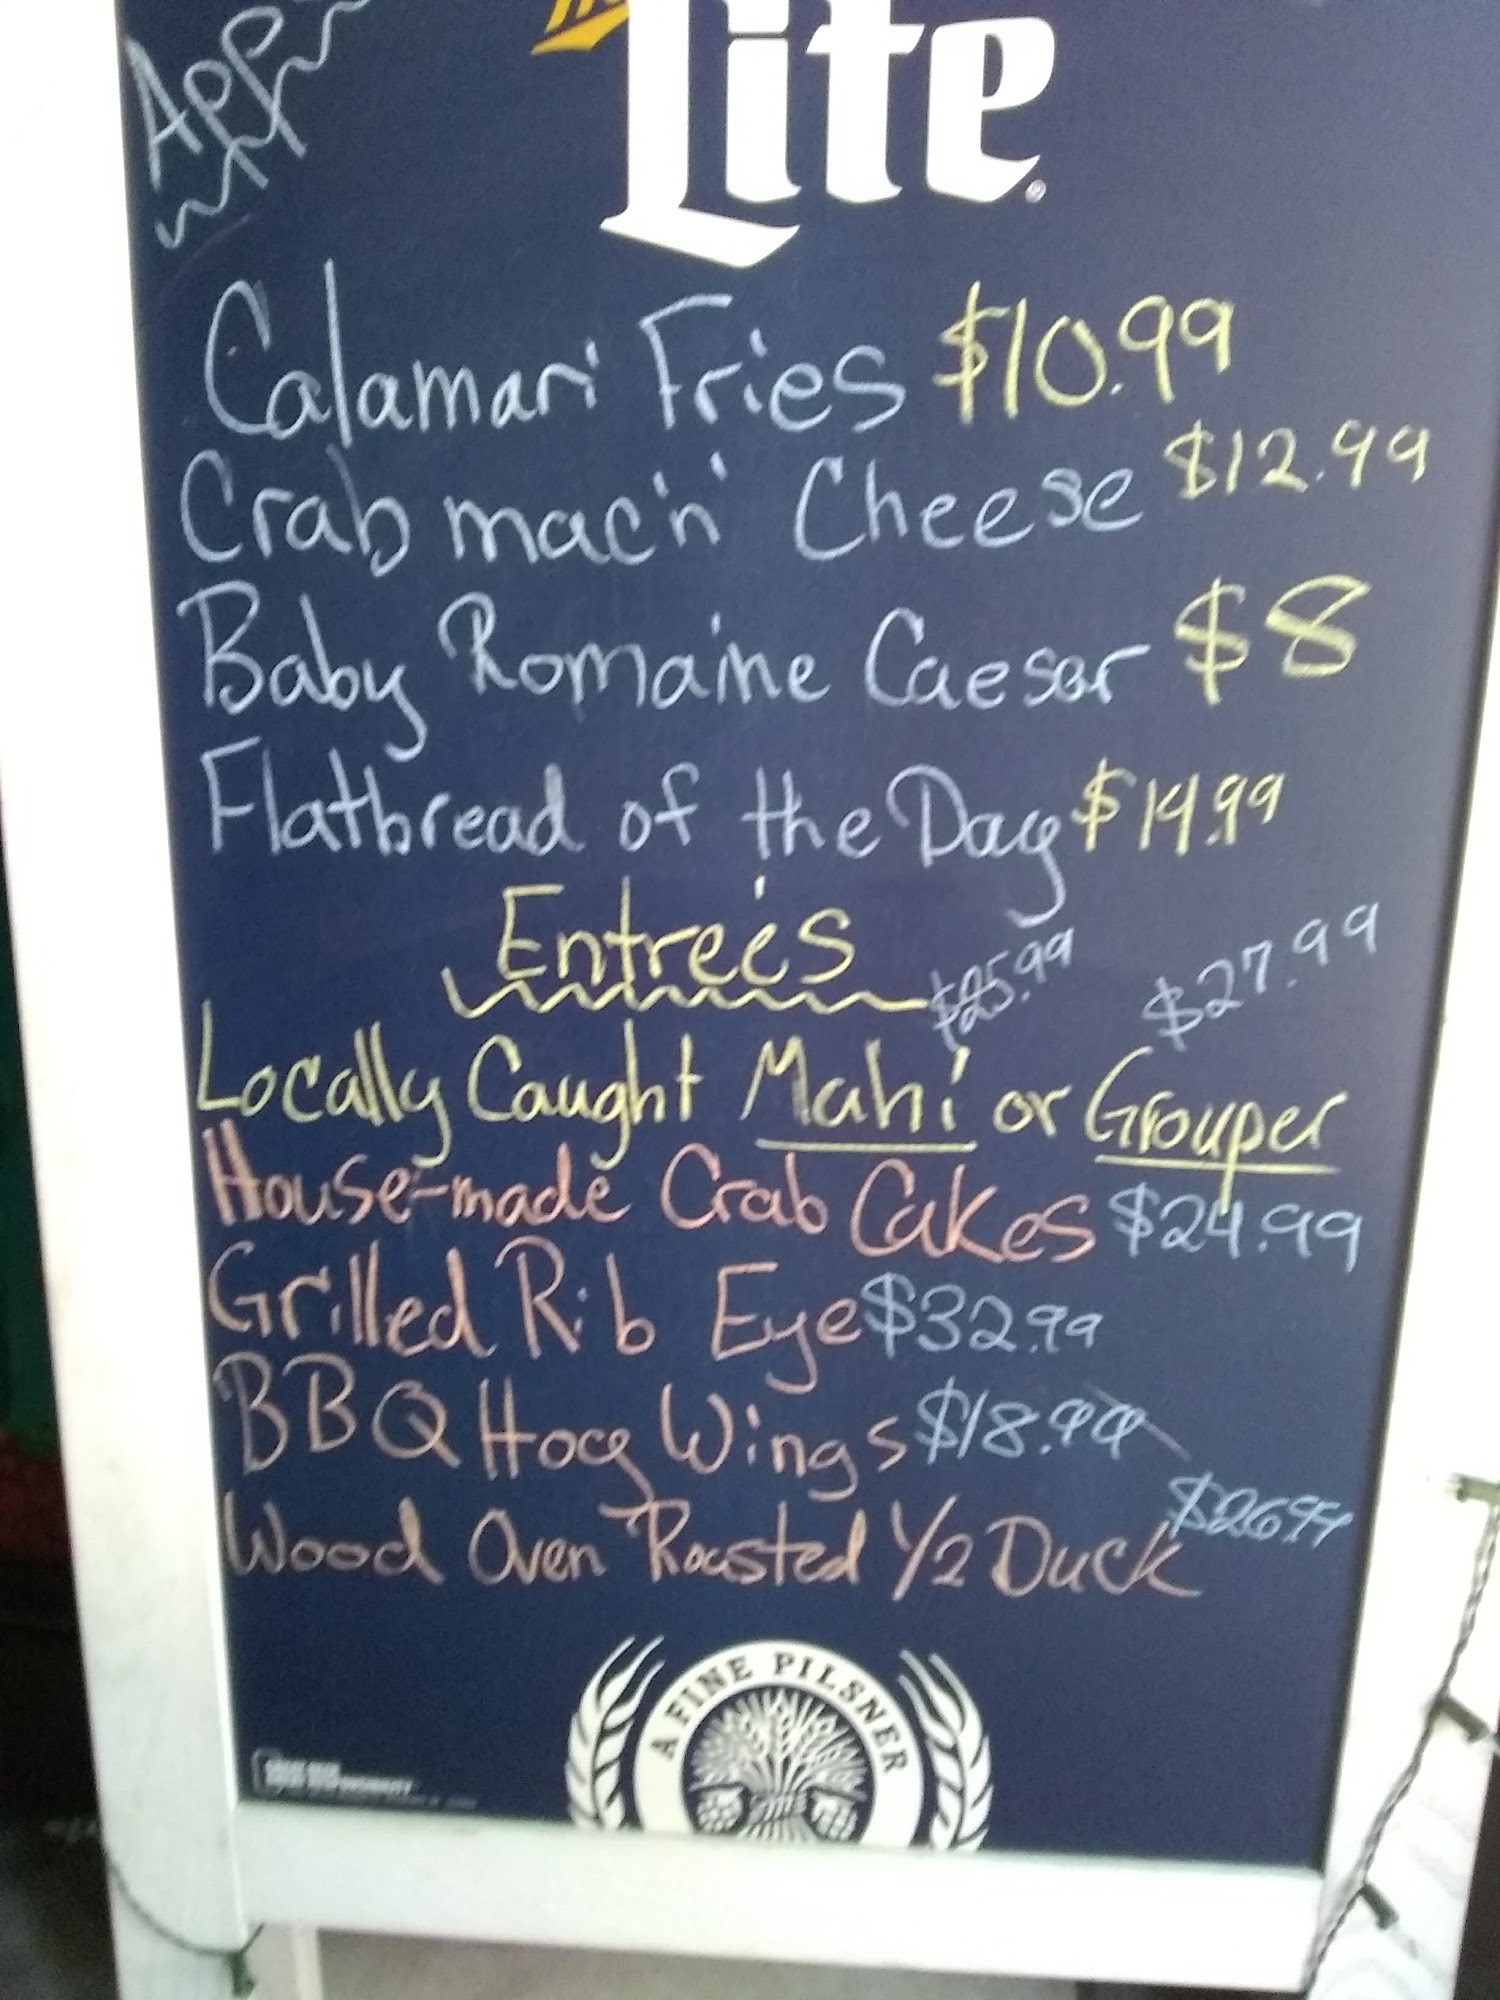 Lite
App
Calamari Fries $10.99
Crab mac'n' Cheese $12.99
Baby Romaine Caesar $8
Flatbread of the Day $14.99
Entreé's
$25.99 $27.99
Locally Caught Mahi or Grouper
House-made Crab Cakes $24.99
Grilled Rib Eye $32.99
BBQ Hog Wings $18.99
$26.99
Wood Oven Roasted 1/2 Duck
A FINE PILSNER